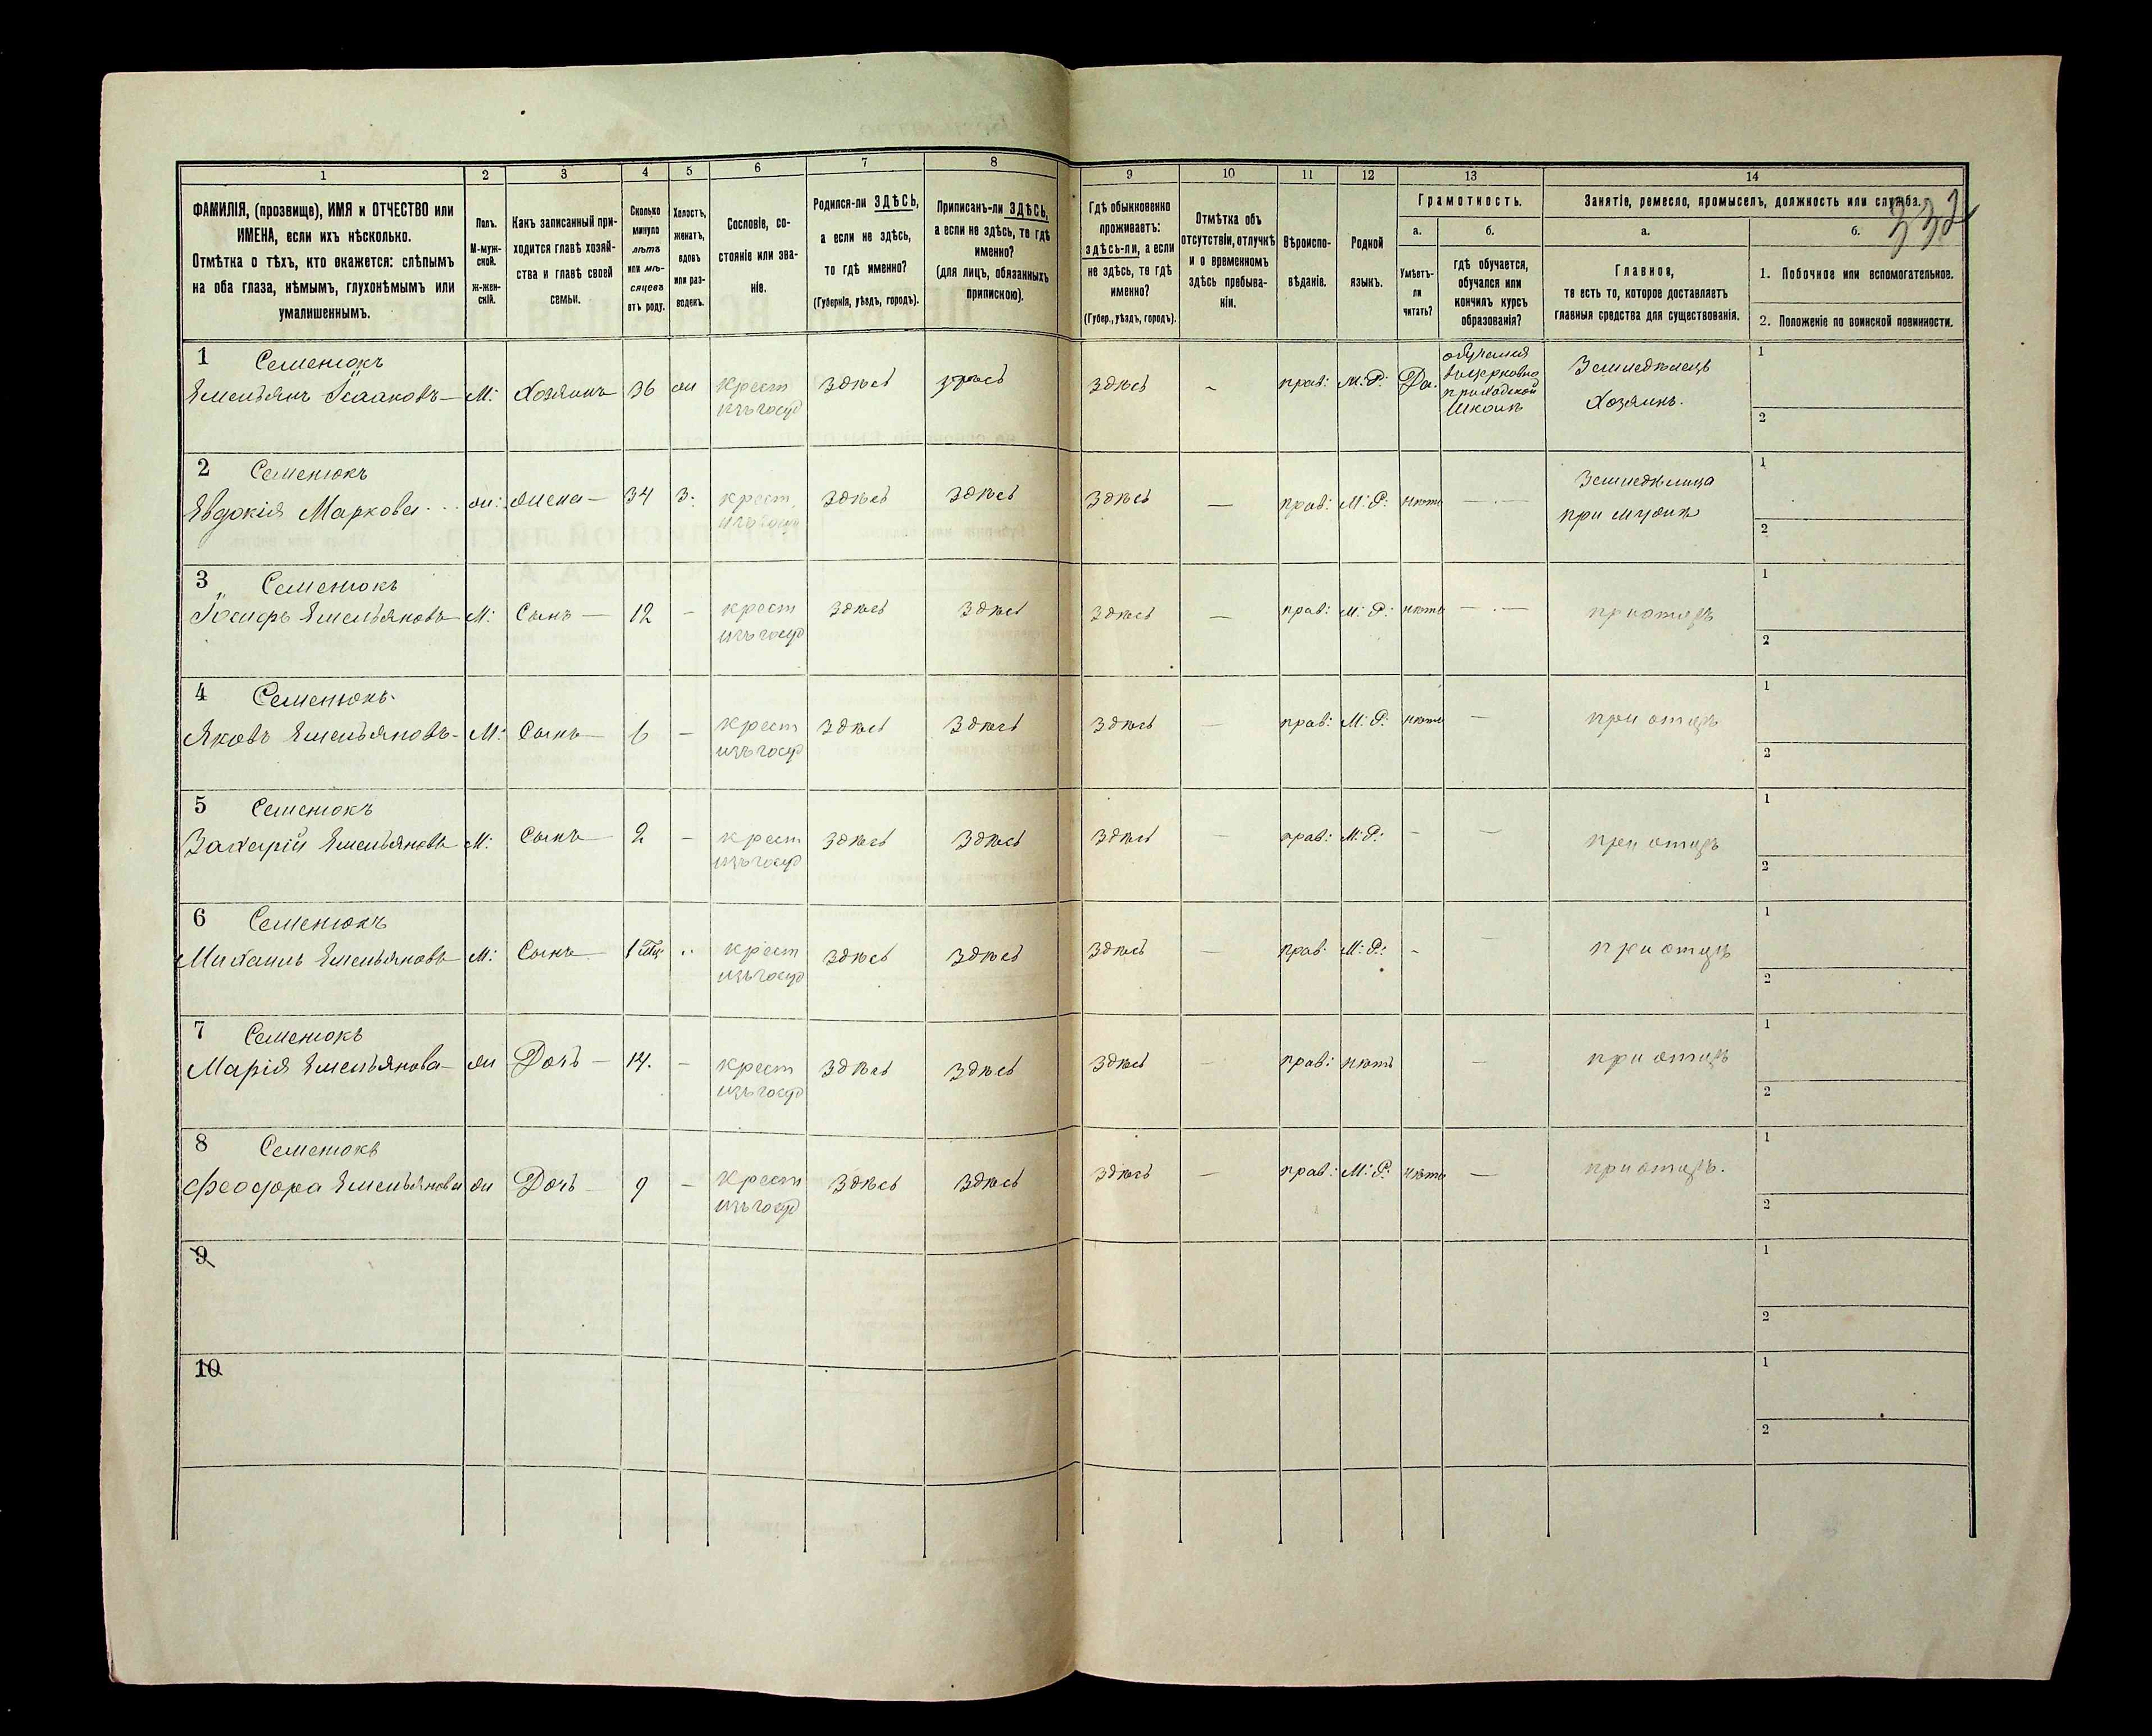 332
1 2 3 4 5 6 7 8 9 10 11 12 13 14
ФАМИЛІЯ, (прозвище), ИМЯ и ОТЧЕСТВО или
ИМЕНА, если ихъ нѣсколько.
Отмѣтка о тѣхъ, кто окажется: слѣпымъ
на оба глаза, нѣмымъ, глухонѣмымъ или
умалишеннымъ.
Полъ.
М-муж-
ской.
ж-жен-
скій.
Какъ записанный при-
ходится главѣ хозяй-
ства и главѣ своей
семьи.
Сколько
минуло
лѣтъ
или мѣ-
сяцевъ
отъ роду.
Холостъ,
женатъ,
вдовъ
или раз-
веденъ.
Сословіе, со-
стояніе или зва-
ніе.
Родился-ли ЗДѢСЬ,
а если не здѣсь,
то гдѣ именно?
(Губернія, уѣздъ, городъ).
Приписанъ-ли ЗДѢСЬ,
а если не здѣсь, то гдѣ
именно?
(для лицъ, обязанныхъ
припискою).
Гдѣ обыкновенно
проживаетъ:
здѣсь-ли, а если
не здѣсь, то гдѣ
именно?
(Губер., уѣздъ, городъ).
Отмѣтка объ
отсутствіи, отлучкѣ
и о временномъ
здѣсь пребыва-
ніи.
Вѣроиспо-
вѣданіе.
Родной
языкъ.
Грамотность.
а.
Умѣетъ-
ли
читать?
б.
гдѣ обучается,
обучался или
кончилъ курсъ
образованія?
Занятіе, ремесло, промыселъ, должность или служба.
а.
Главное,
то есть то, которое доставляетъ
главныя средства для существованія.
б.
1. Побочное или вспомогательное.
2. Положеніе по воинской повинности.
1 Семенюкъ
Емельянъ Ісааковъ — М: Хозяинъ 36 ж крест изъ госуд здѣсь здѣсь здѣсь - прав: М: Р: Да. обучался въ церковно приходской школѣ Земледѣлецъ Хозяинъ. 1 2
2 Семенюкъ
Евдокія Маркова ж: жена — 34 з. крест изъ госуд здѣсь здѣсь здѣсь — прав: М: Р: нѣтъ — Земледѣлица при мужѣ 1 2
3 Семенюкъ
Іосифъ Емельяновъ М: Сынъ — 12 - крест изъ госуд здѣсь здѣсь здѣсь — прав: М: Р: нѣтъ — при отцѣ 1 2
4 Семенюкъ
Яковъ Емельяновъ - М: Сынъ — 6 - крест изъ госуд здѣсь здѣсь здѣсь — прав: М: Р: нѣтъ — при отцѣ 1 2
5 Семенюкъ
Захарій Емельяновъ М: Сынъ — 2 - крест изъ госуд здѣсь здѣсь здѣсь — прав: М: Р: - — при отцѣ 1 2
6 Семенюкъ
Михаилъ Емельяновъ М: Сынъ — 1 мц крест изъ госуд здѣсь здѣсь здѣсь — прав: М: Р: - — при отцѣ 1 2
7 Семенюкъ
Марія Емельянова — ж Дочь — 14. - крест изъ госуд здѣсь здѣсь здѣсь — прав: нѣтъ — при отцѣ 1 2
8 Семенюкъ
Феодора Емельянова ж Дочь — 9 - крест изъ госуд здѣсь здѣсь здѣсь — прав: М: Р: нѣтъ — при отцѣ. 1 2
9 1 2
10 1 2